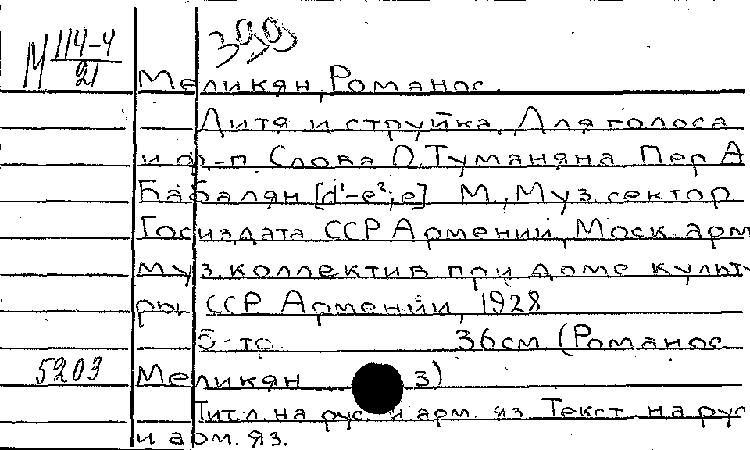 М 114-4
21
399
Меликян, Романос.
Дитя и струйка. Для голоса
и ф-п. Слова О. Туманяна. Пер. А.
Бабалян [d¹-e²; e]. М., Муз. сектор
Госиздата ССР Армении, Моск. арм.
муз. коллектив при доме культу
ры ССР Армении, 1928
5-то. 36 см (Романос
5203 Меликян 3)
Титл. на рус. и арм. яз. Текст на рус
и арм. яз.